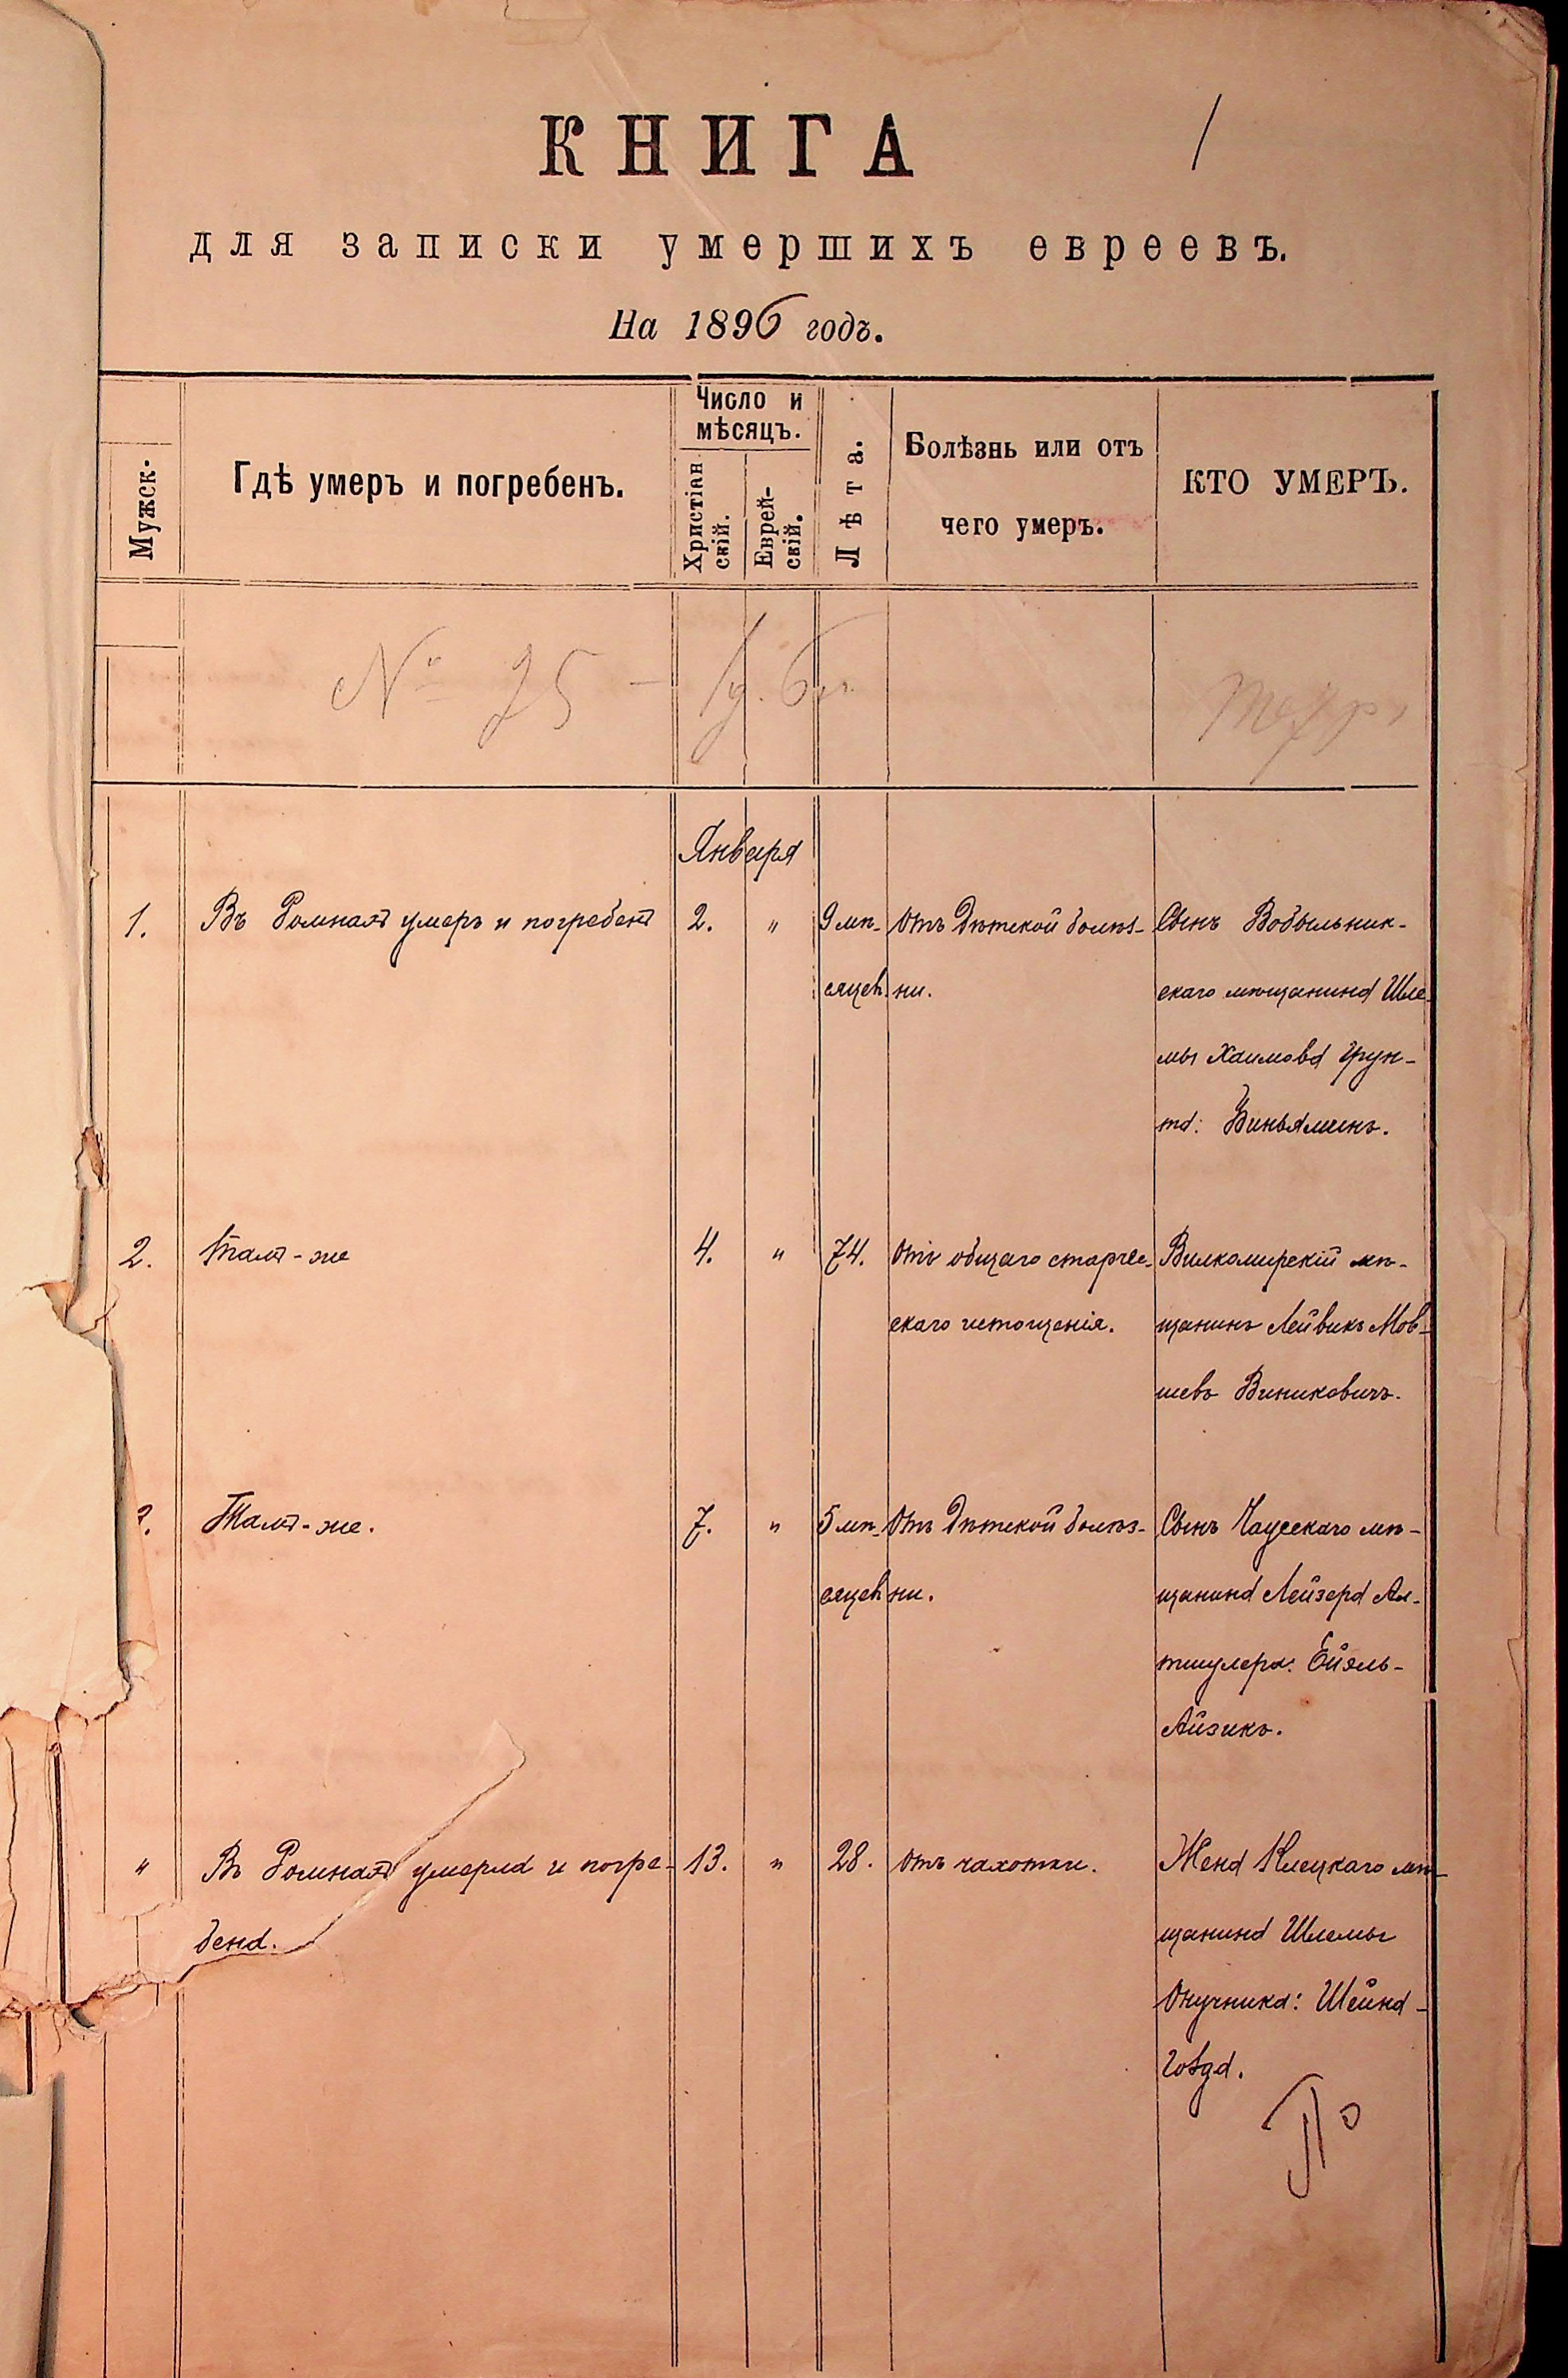 КНИГА
1
для записки умершихъ евреевъ.
На 1896 годъ.
Мужск-
Гдѣ умеръ и погребенъ.
Число и
мѣсяцъ.
Христіан
скій.
Еврей-
скій.
Лѣта.
Болѣзнь или отъ
чего умеръ.
КТО УМЕРЪ.
№ 25 —
Января
1. Въ Ромнахъ умеръ и погребенъ 2. " 9 мѣ- Отъ Дѣтской болѣз- Сынъ Вобыльник-
сяцев. ни. скаго мѣщанина Шле-
мы Хаимова Грун-
та: Виньяминъ.
2. Тамъ-же 4. " 74. Отъ общаго старче- Вилкомирскій мѣ-
скаго истощенія. щанинъ Лейвикъ Мов-
шевъ Виниковичъ.
3. Тамъ-же. 7. " 5 мѣ- Отъ Дѣтской болѣз- Сынъ Чаусскаго мѣ-
сяцев ни. щанина Лейзера Ал-
тшулера: Ейзель-
Айзикъ.
" Въ Ромнахъ умерла и погре- 13. " 28. Отъ чахотки. Жена Клецкаго мѣ-
бена. щанина Шлемы
Онучника: Шейна-
По